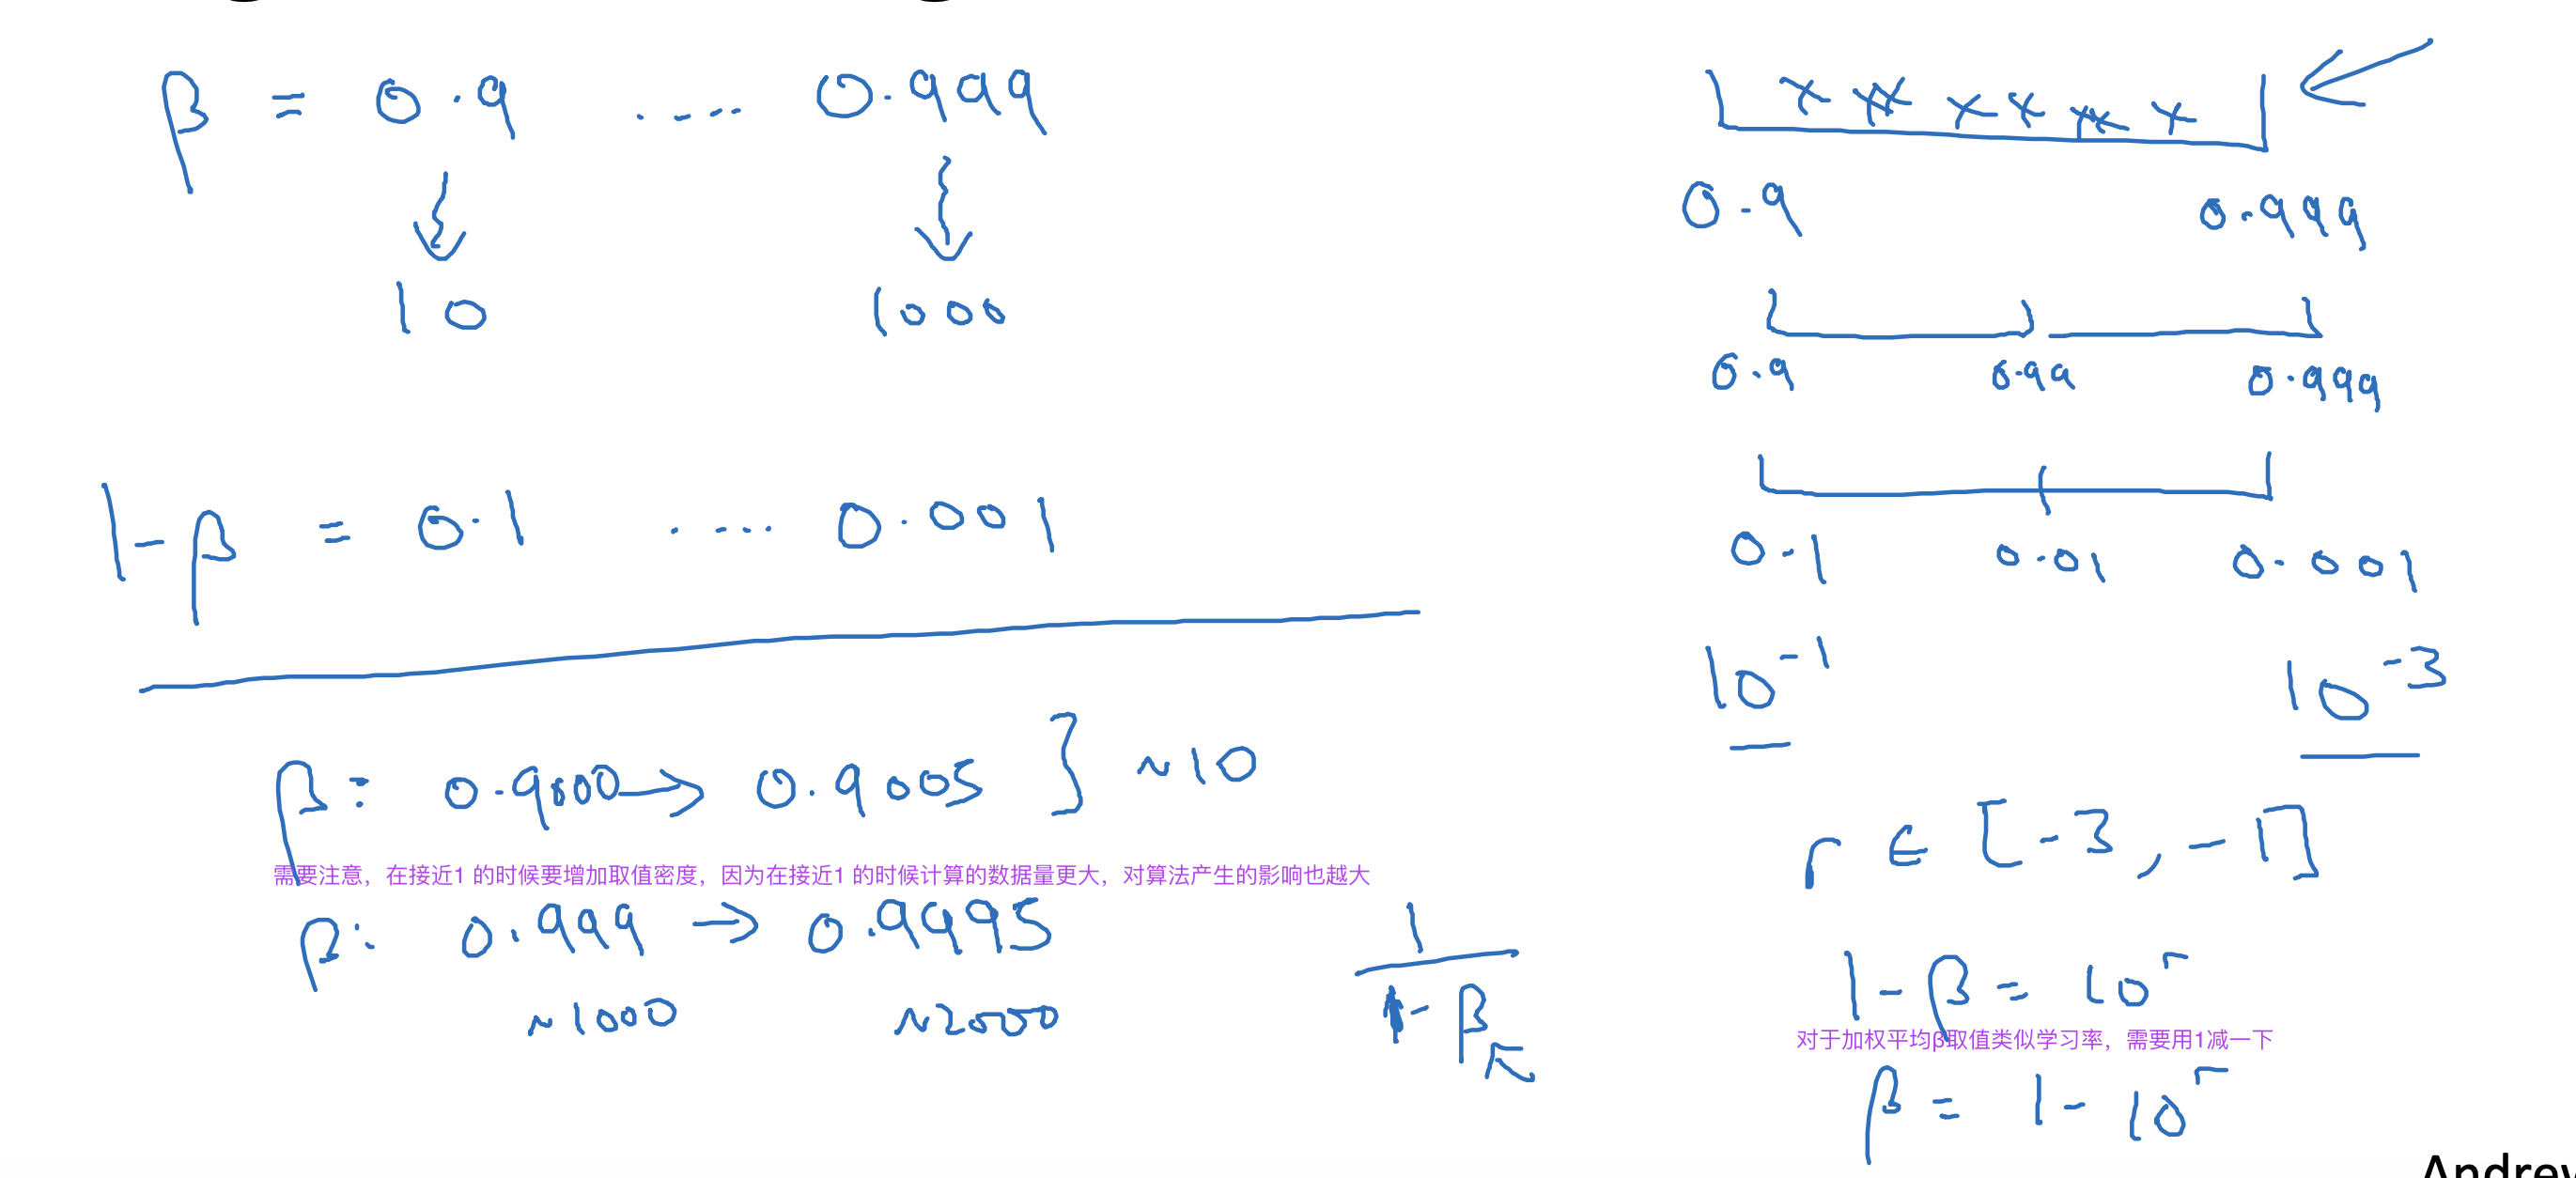 β = 0.9 .... 0.999
10 1000
1-β = 0.1 .... 0.001
β: 0.9000 → 0.9005 } ~10
需要注意，在接近1 的时候要增加取值密度，因为在接近1 的时候计算的数据量更大，对算法产生的影响也越大
β: 0.999 → 0.9995
~1000 ~2000
1
1-β
0.9 0.999
0.9 0.99 0.999
0.1 0.01 0.001
10^-1 10^-3
r ∈ [-3, -1]
1-β = 10^r
对于加权平均β取值类似学习率，需要用1减一下
β = 1-10^r